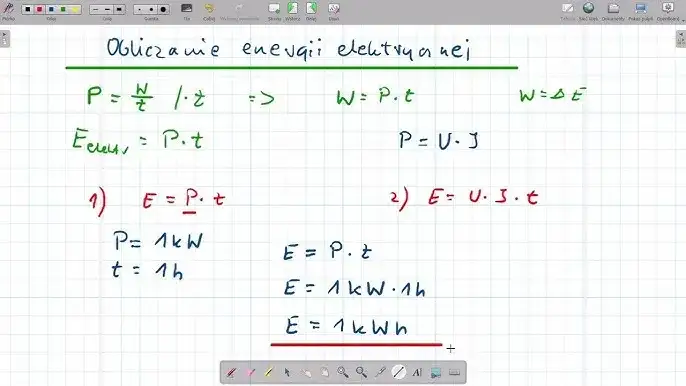 Obliczanie energii elektrycznej
P = W/t /·t => W = P·t W = Δ E
E elektr = P·t P = U·I
1) E = P·t 2) E = U·I·t
P = 1kW
t = 1h
E = P·t
E = 1kW·1h
E = 1kWh